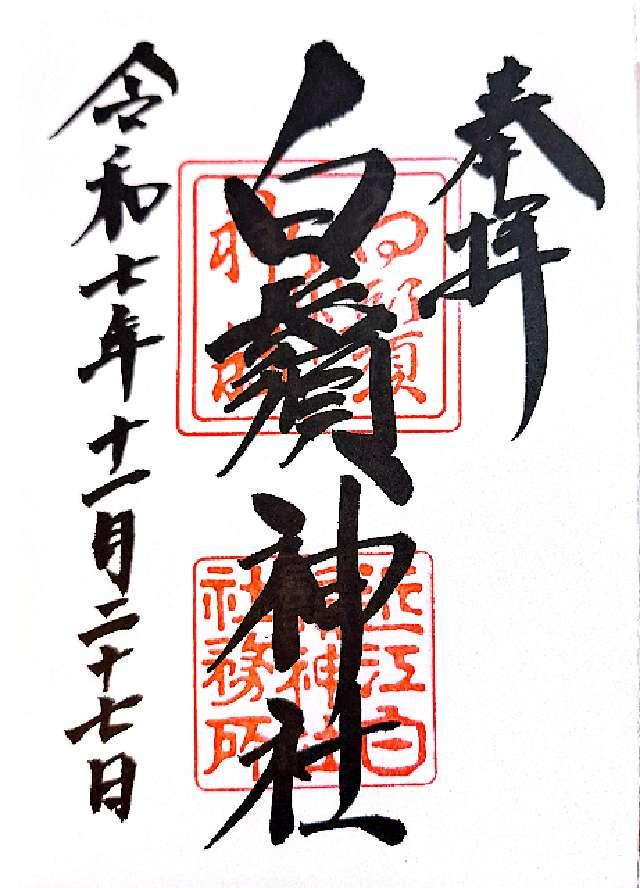 奉拝
白鬚神社
令和七年十一月二十七日
近江白
神社
社務所